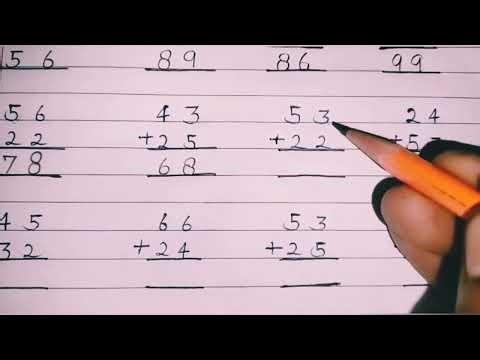 56 89 86 99
56 43 53 24
22 +25 +22 +5
78 68
45 66 53
32 +24 +25